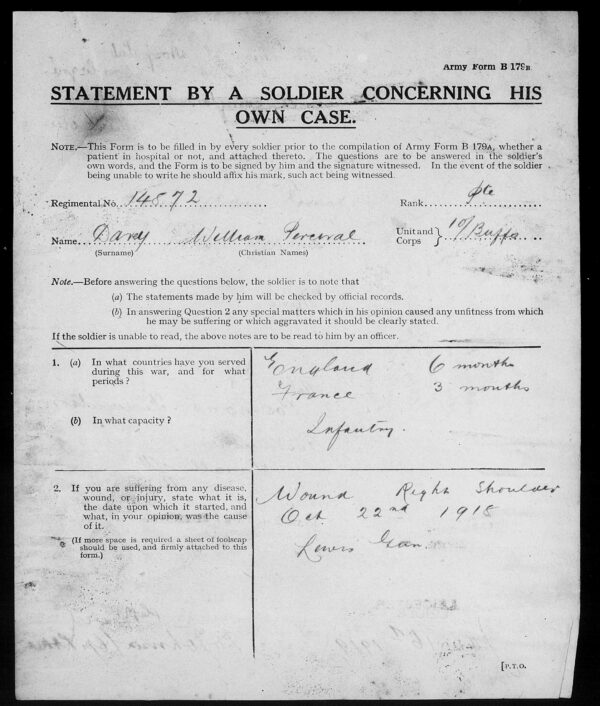 Army Form B 179B
STATEMENT BY A SOLDIER CONCERNING HIS
OWN CASE.
NOTE.—This Form is to be filled in by every soldier prior to the compilation of Army Form B 179A, whether a
patient in hospital or not, and attached thereto. The questions are to be answered in the soldier's
own words, and the Form is to be signed by him and the signature witnessed. In the event of the soldier
being unable to write he should affix his mark, such act being witnessed.
Regimental No. 14872
Rank Pte
Name Davey William Perceval
Unit and Corps } 10/Buffs
(Surname) (Christian Names)
Note.—Before answering the questions below, the soldier is to note that
(a) The statements made by him will be checked by official records.
(b) In answering Question 2 any special matters which in his opinion caused any unfitness from which
he may be suffering or which aggravated it should be clearly stated.
If the soldier is unable to read, the above notes are to be read to him by an officer.
1. (a) In what countries have you served
during this war, and for what
periods ?
England 6 months
France 3 months
(b) In what capacity ?
Infantry.
2. If you are suffering from any disease,
wound, or injury, state what it is,
the date upon which it started, and
what, in your opinion, was the cause
of it.
(If more space is required a sheet of foolscap
should be used, and firmly attached to this
form.)
Wound Right Shoulder
Oct 22nd 1918
Lewis Gun
[P.T.O.